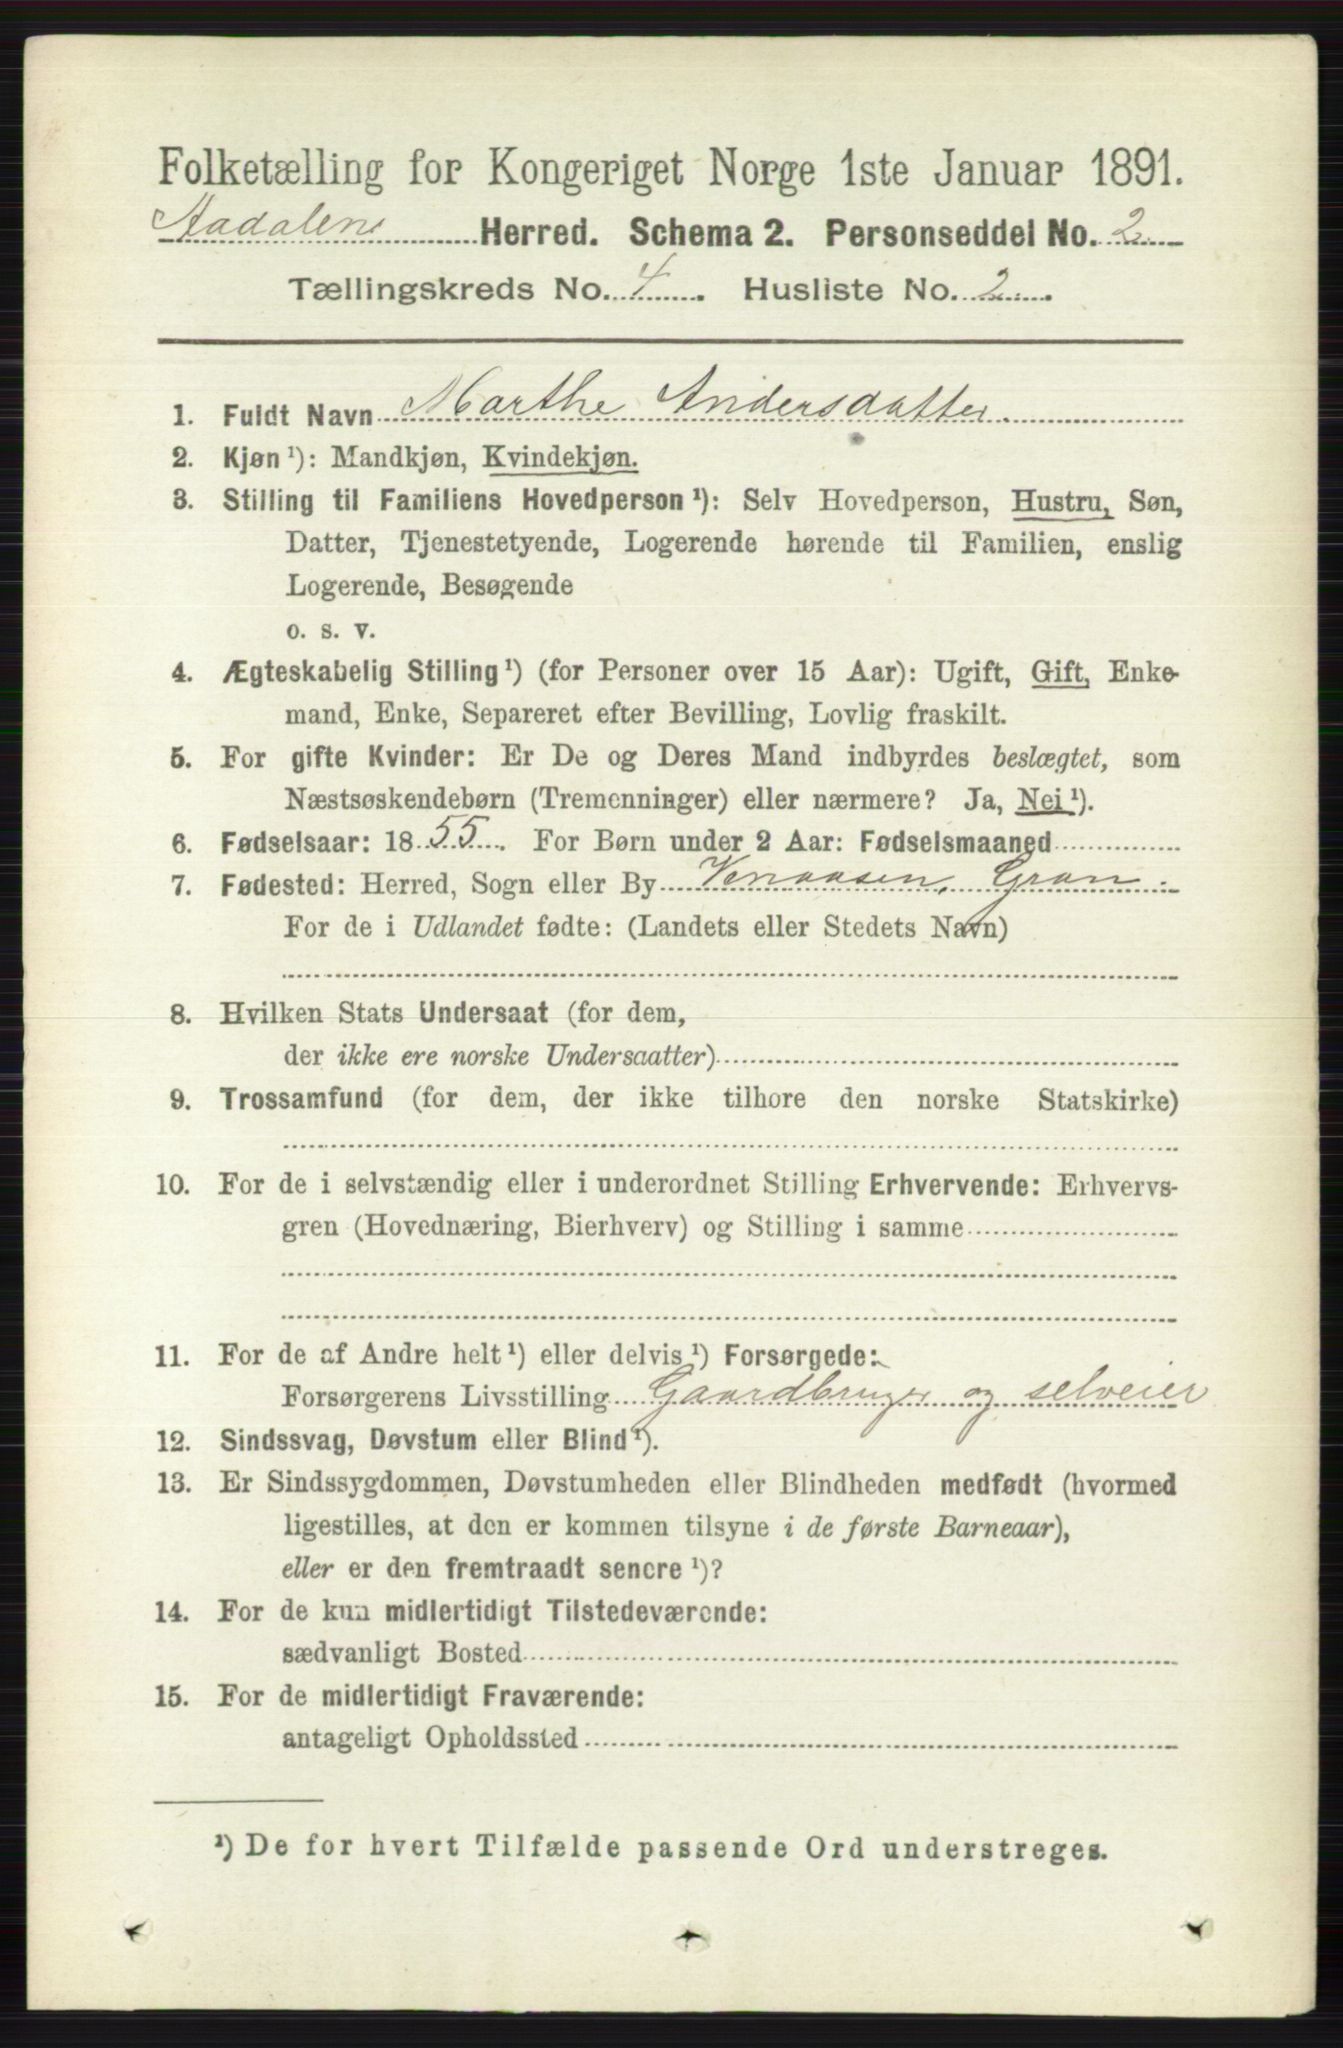 Folketælling for Kongeriget Norge 1ste Januar 1891.
Aadalens Herred. Schema 2. Personseddel No. 2
Tællingskreds No. 4. Husliste No. 2.
1. Fuldt Navn Marthe Andersdatter
2. Kjøn ¹): Mandkjøn, Kvindekjøn.
3. Stilling til Familiens Hovedperson ¹): Selv Hovedperson, Hustru, Søn,
Datter, Tjenestetyende, Logerende hørende til Familien, enslig
Logerende, Besøgende
o. s. v.
4. Ægteskabelig Stilling ¹) (for Personer over 15 Aar): Ugift, Gift, Enke-
mand, Enke, Separeret efter Bevilling, Lovlig fraskilt.
5. For gifte Kvinder: Er De og Deres Mand indbyrdes beslægtet, som
Næstsøskendebørn (Tremenninger) eller nærmere? Ja, Nei ¹).
6. Fødselsaar: 1855. For Børn under 2 Aar: Fødselsmaaned
7. Fødested: Herred, Sogn eller By Venaasen, Gran
For de i Udlandet fødte: (Landets eller Stedets Navn)
8. Hvilken Stats Undersaat (for dem,
der ikke ere norske Undersaatter)
9. Trossamfund (for dem, der ikke tilhøre den norske Statskirke)
10. For de i selvstændig eller i underordnet Stilling Erhvervende: Erhvervs-
gren (Hovednæring, Bierhverv) og Stilling i samme
11. For de af Andre helt ¹) eller delvis ¹) Forsørgede:
Forsørgerens Livsstilling Gaardbruger og selveier
12. Sindssvag, Døvstum eller Blind ¹).
13. Er Sindssygdommen, Døvstumheden eller Blindheden medfødt (hvormed
ligestilles, at den er kommen tilsyne i de første Barneaar),
eller er den fremtraadt senere ¹)?
14. For de kun midlertidigt Tilstedeværende:
sædvanligt Bosted
15. For de midlertidigt Fraværende:
antageligt Opholdssted
¹) De for hvert Tilfælde passende Ord understreges.